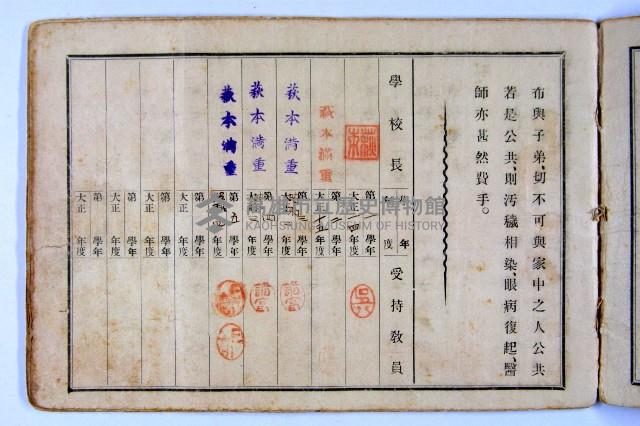 布與子弟、切不可與家中之人公共
若是公共、則汚穢相染、眼病復起、醫
師亦甚然費手。
學校長
年
度
受持敎員
第一學年
大正四年度
第二學年
大正五年度
萩本滿重
第三學年
大正年度
萩本滿重
第四學年
大正年度
萩本滿重
第五學年
年度
萩本滿重
第學年
大正年度
第學年
大正年度
第學年
大正年度
第學年
大正年度
高雄市立歷史博物館
KAOHSIUNG MUSEUM OF HISTORY